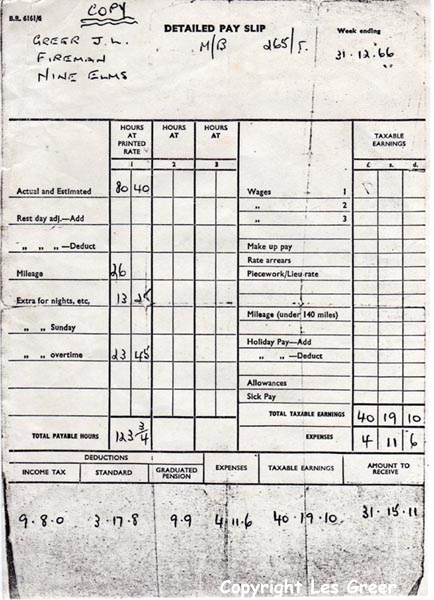 B.R. 6161/6
COPY
DETAILED PAY SLIP
Week ending
GREER J.L.
M/B
265/5.
31.12.66
FIREMAN
NINE ELMS
HOURS AT PRINTED RATE
HOURS AT
HOURS AT
TAXABLE EARNINGS
1 2 3
£ s. d.
Actual and Estimated 60 40
Wages 1
Rest day adj.—Add
„ 2
„ 3
„ „ „ —Deduct
Make up pay
Rate arrears
Mileage 26
Piecework/Lieu rate
Extra for nights, etc, 13 25
Mileage (under 140 miles)
„ „ Sunday
Holiday Pay—Add
„ „ overtime 23 45
„ „ —Deduct
Allowances
Sick Pay
TOTAL TAXABLE EARNINGS 40 19 10
TOTAL PAYABLE HOURS 123 3/4
EXPENSES 4 11 6
DEDUCTIONS
INCOME TAX STANDARD GRADUATED PENSION EXPENSES TAXABLE EARNINGS AMOUNT TO RECEIVE
9.8.0 3.17.8 9.9 4.11.6 40.19.10 31.15.11
Copyright Les Greer